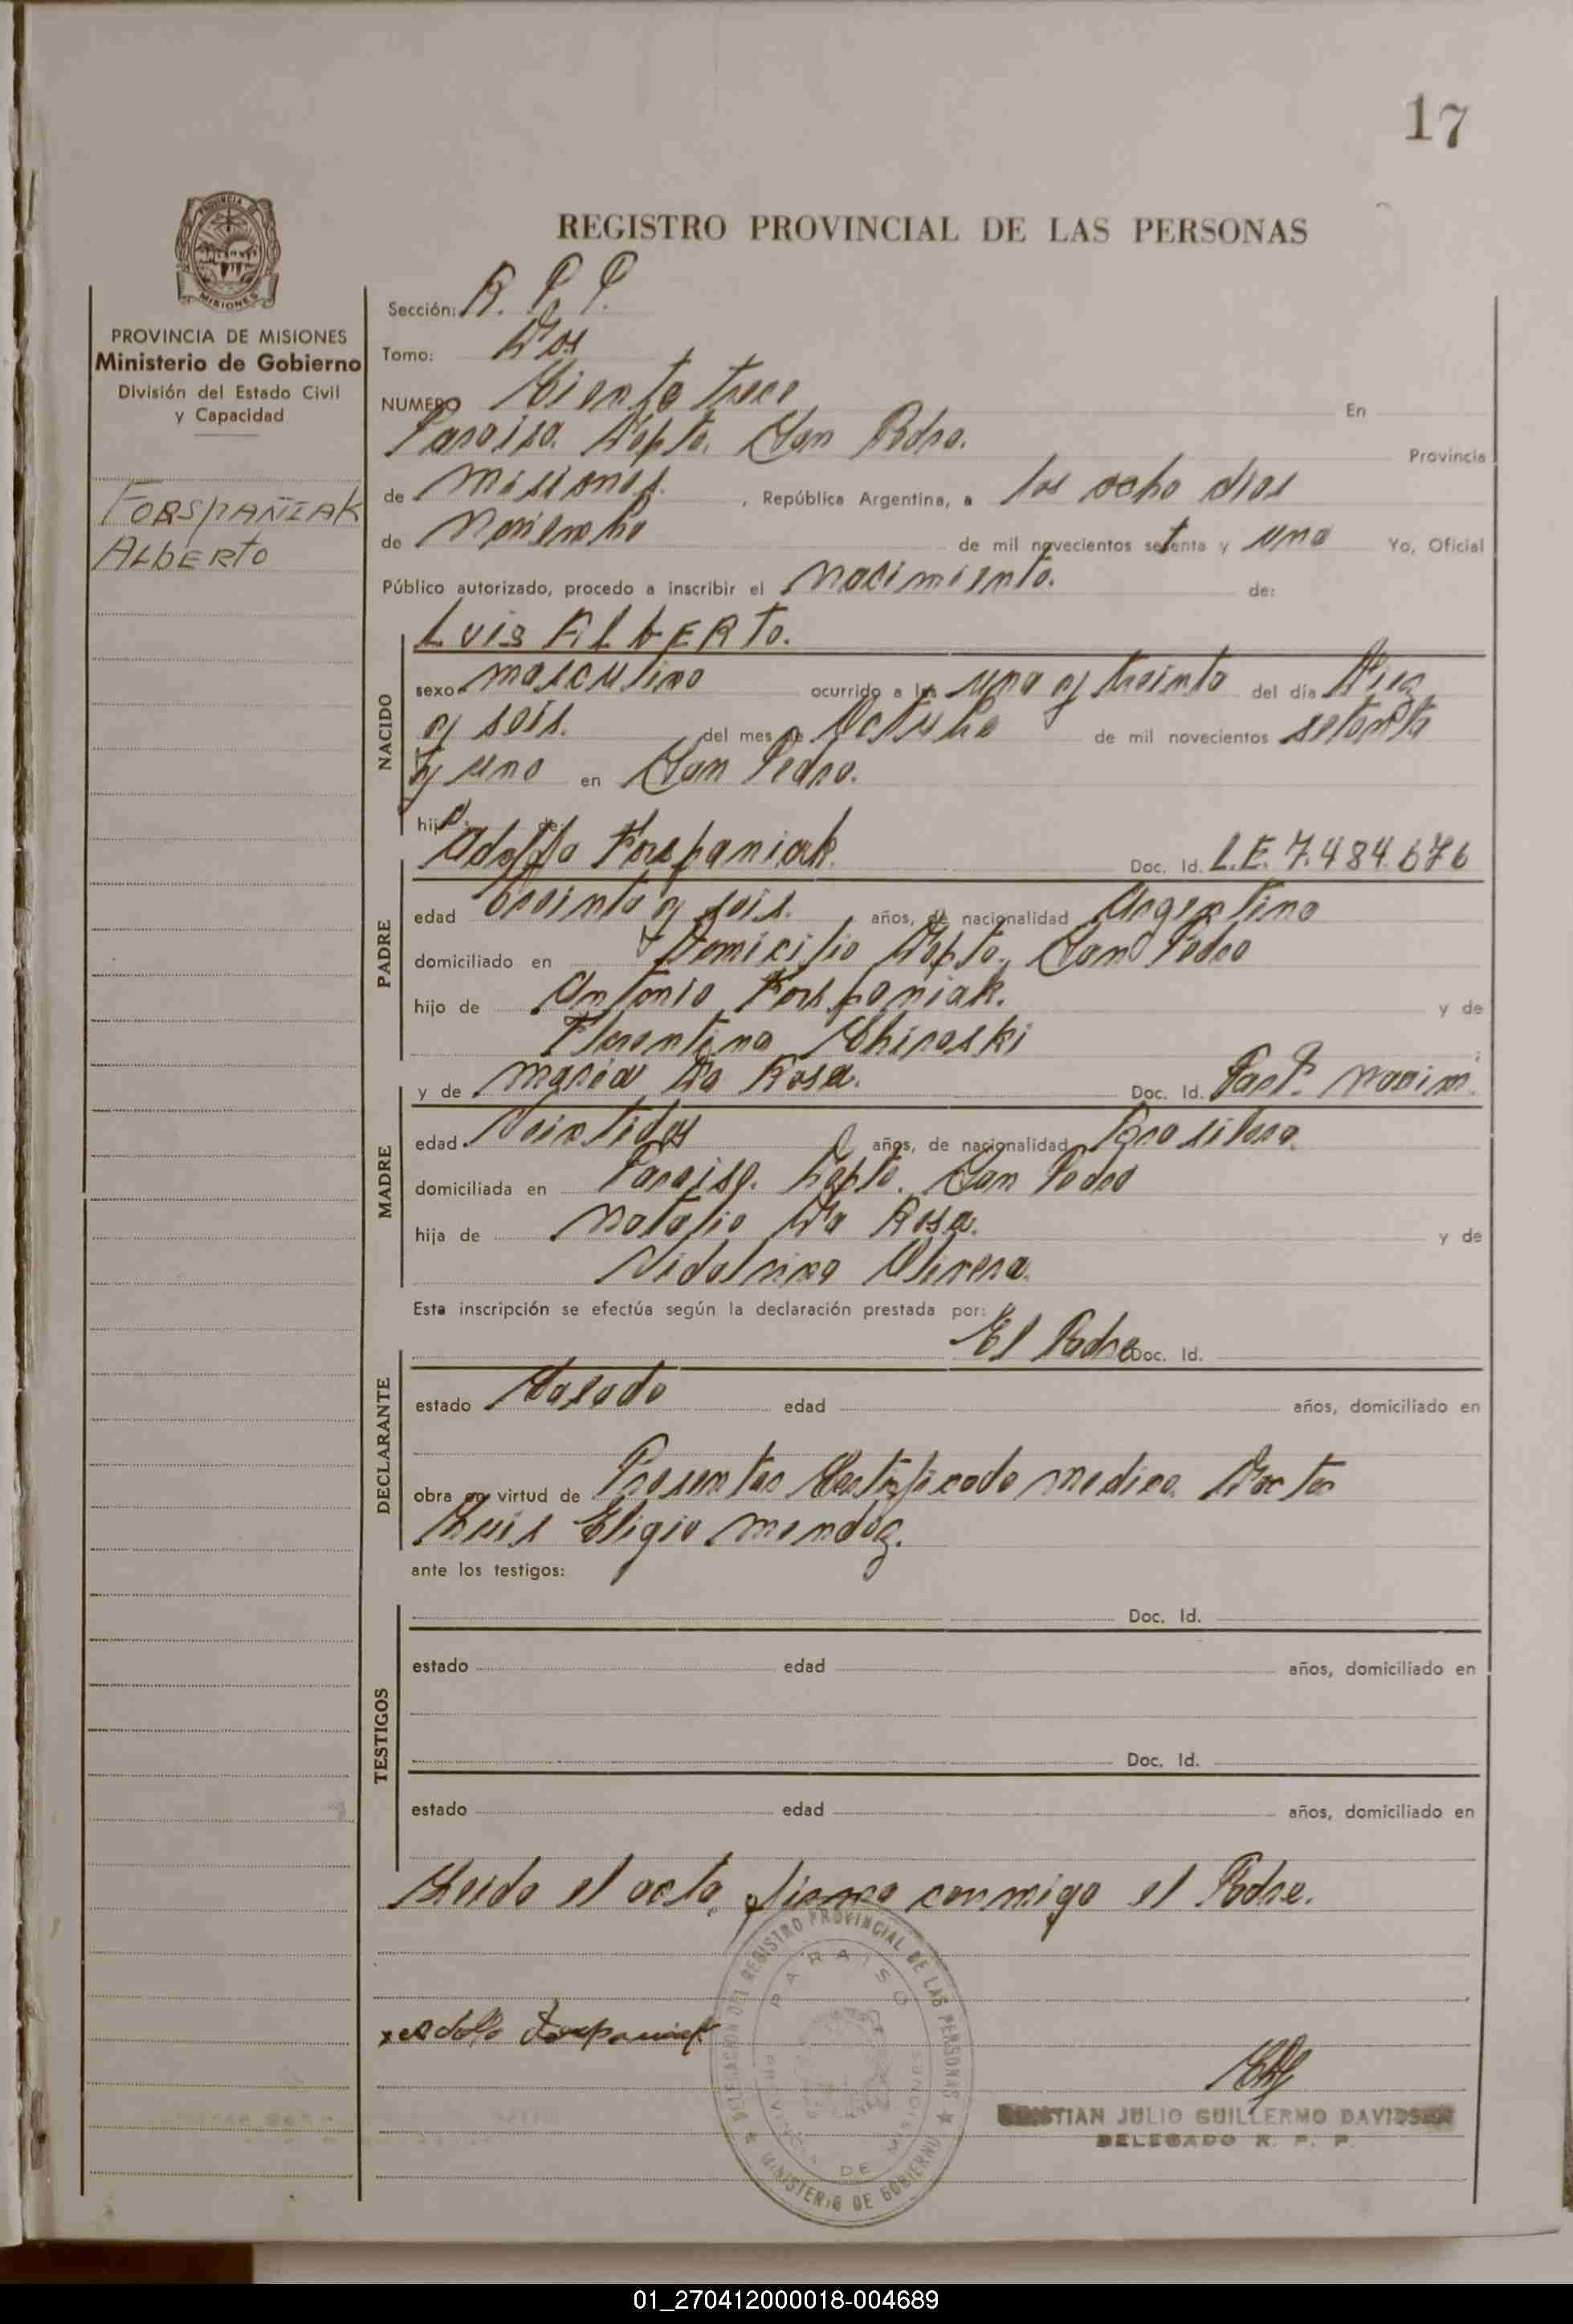 17
REGISTRO PROVINCIAL DE LAS PERSONAS
MISIONES
PROVINCIA DE MISIONES
Ministerio de Gobierno
División del Estado Civil
y Capacidad
FORSPAÑIAK
ALBERTO
Sección: R. P. P.
Tomo: Dos
NUMERO Ciento trece En
Paraiso. Depto. San Pedro. Provincia
de Misiones. , República Argentina, a los ocho dias
de Noviembre de mil novecientos setenta y uno Yo, Oficial
Público autorizado, procedo a inscribir el nacimiento. de:
LUIS ALBERTO.
NACIDO
sexo masculino ocurrido a las una y treinta del día Diez
y seis. del mes de Octubre de mil novecientos setenta
y uno en San Pedro.
hijo de:
Adolfo Forspaniak. Doc. Id. L.E. 7.484.676
PADRE
edad treinta y seis. años, de nacionalidad Argentino
domiciliado en Domicilio Depto. San Pedro
hijo de Antonio Forspaniak. y de
Florentina Chiraski
y de Maria Da Rosa. Doc. Id. Part. Nacim.
MADRE
edad Veintidos años, de nacionalidad Brasilera
domiciliada en Paraiso. Depto. San Pedro
hija de Natalio Da Rosa. y de
Olivera.
Esta inscripción se efectúa según la declaración prestada por:
El Padre Doc. Id.
DECLARANTE
estado Casado edad años, domiciliado en
obra en virtud de Presentar Certificado medico Doctor
Luis Eligio Mendoz.
ante los testigos:
Doc. Id.
TESTIGOS
estado edad años, domiciliado en
Doc. Id.
estado edad años, domiciliado en
Leido el acta, firma conmigo el Padre.
x Adolfo Forspaniak
DELEGACION DEL REGISTRO PROVINCIAL DE LAS PERSONAS
PARAISO
PROVINCIA DE MISIONES
MINISTERIO DE GOBIERNO
JULIO GUILLERMO DAVIDSEN
DELEGADO R. P. P.
01_270412000018-004689